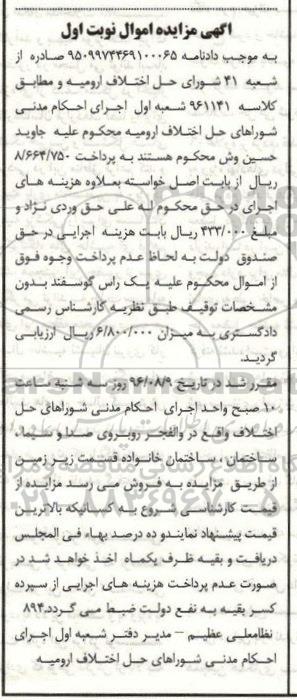 آگهی مزایده اموال نوبت اول
به موجب دادنامه ۹۵۰۹۹۷۴۴۶۹۱۰۰۰۶۵ صادره از
شعبه ۴۱ شورای حل اختلاف ارومیه و مطابق
کلاسه ۹۶۱۱۴۱ شعبه اول اجرای احکام مدنی
شوراهای حل اختلاف ارومیه محکوم علیه جاوید
حسین وش محکوم هستند به پرداخت ۸/۶۶۴/۷۵۰
ریال از بابت اصل خواسته بعلاوه هزینه های
اجرای در حق محکوم له علی حق وردی نژاد و
مبلغ ۴۳۳/۰۰۰ ریال بابت هزینه اجرایی در حق
صندوق دولت به لحاظ عدم پرداخت وجوه فوق
از اموال محکوم علیه یک راس گوسفند بدون
مشخصات توقیف طبق نظریه کارشناس رسمی
دادگستری به میزان ۶/۸۰۰/۰۰۰ ریال ارزیابی
گردید.
مقرر شد در تاریخ ۹۶/۰۸/۹ روز سه شنبه ساعت
۱۰ صبح واحد اجرای احکام مدنی شوراهای حل
اختلاف واقع در والفجر روبروی صدا و سیما،
ساختمان ، ساختمان خانواده قسمت زیر زمین
از طریق مزایده به فروش می رسد مزایده از
قیمت کارشناسی شروع به کسانیکه بالاترین
قیمت پیشنهاد نمایندو ده درصد بهاء فی المجلس
دریافت و بقیه ظرف یکماه اخذ خواهد شد در
صورت عدم پرداخت هزینه های اجرایی از سپرده
کسر بقیه به نفع دولت ضبط می گردد.۸۹۴
نظامعلی عظیم – مدیر دفتر شعبه اول اجرای
احکام مدنی شوراهای حل اختلاف ارومیه